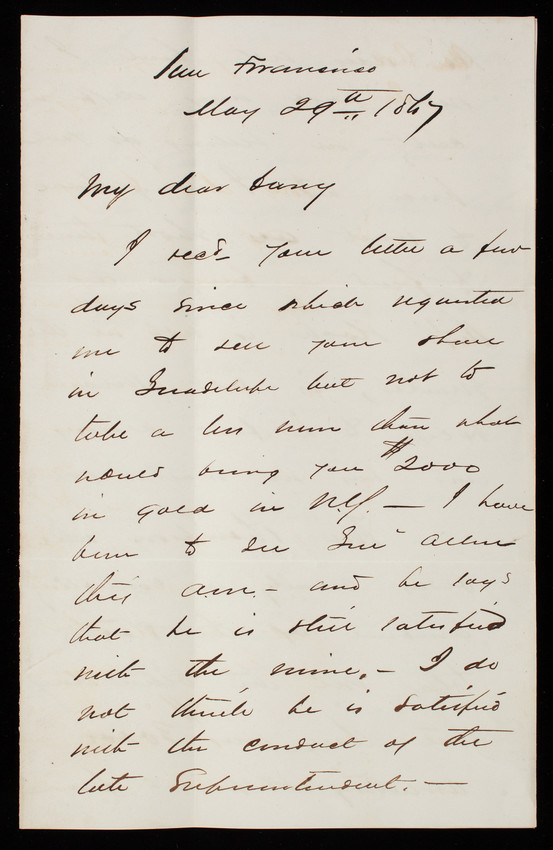 San Francisco
May 29th 1867
My dear Casey
I recd your letter a few
days since which requested
me to sell your share
in Guadalupe but not to
take a less sum than what
would bring you $2000
in gold in NY. — I have
been to see Gen' Allen
this a.m. – and he says
that he is still satisfied
with the mine. – I do
not think he is satisfied
with the conduct of the
late Superintendent. —